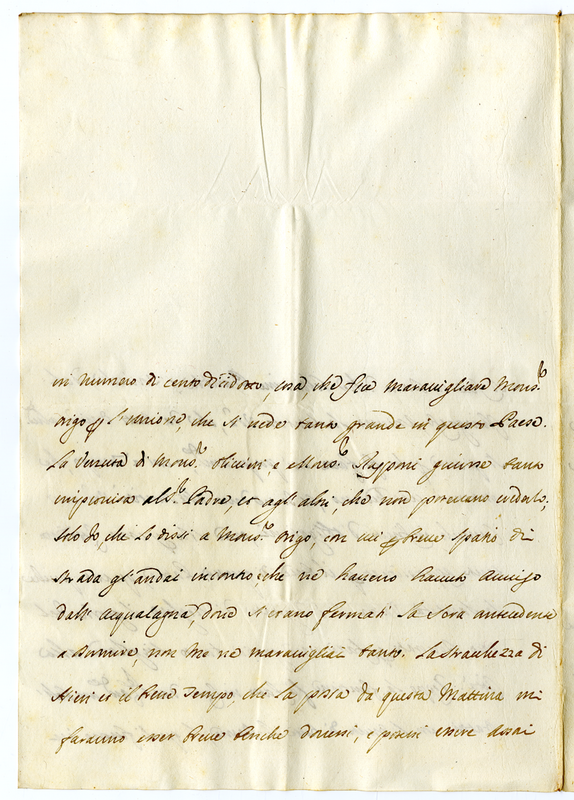 in numero di cento dicidotto, cosa, che fece maravigliare Mons.r
Origo p l'unione, che si vede tanto grande in questo Paese.
La Venuta di Mons.r Olivieri, e Mons.r giunse tanto
improvisa al S.r Padre, et agl'altri che non potevano crederlo,
Solo Io, che lo dissi a Mons.r Origo, con cui p breve spatio di
strada gl'andai incontro, che ne havevo havuto Aviso
dall'Acqualagna, dove si erano fermati la sera antecedente
a Dormire, non me ne maravigliai tanto. La Strachezza di
Hieri et il breve Tempo, che la posta da questa Mattina mi
faranno esser breve benche dovessi, e potessi essere assai